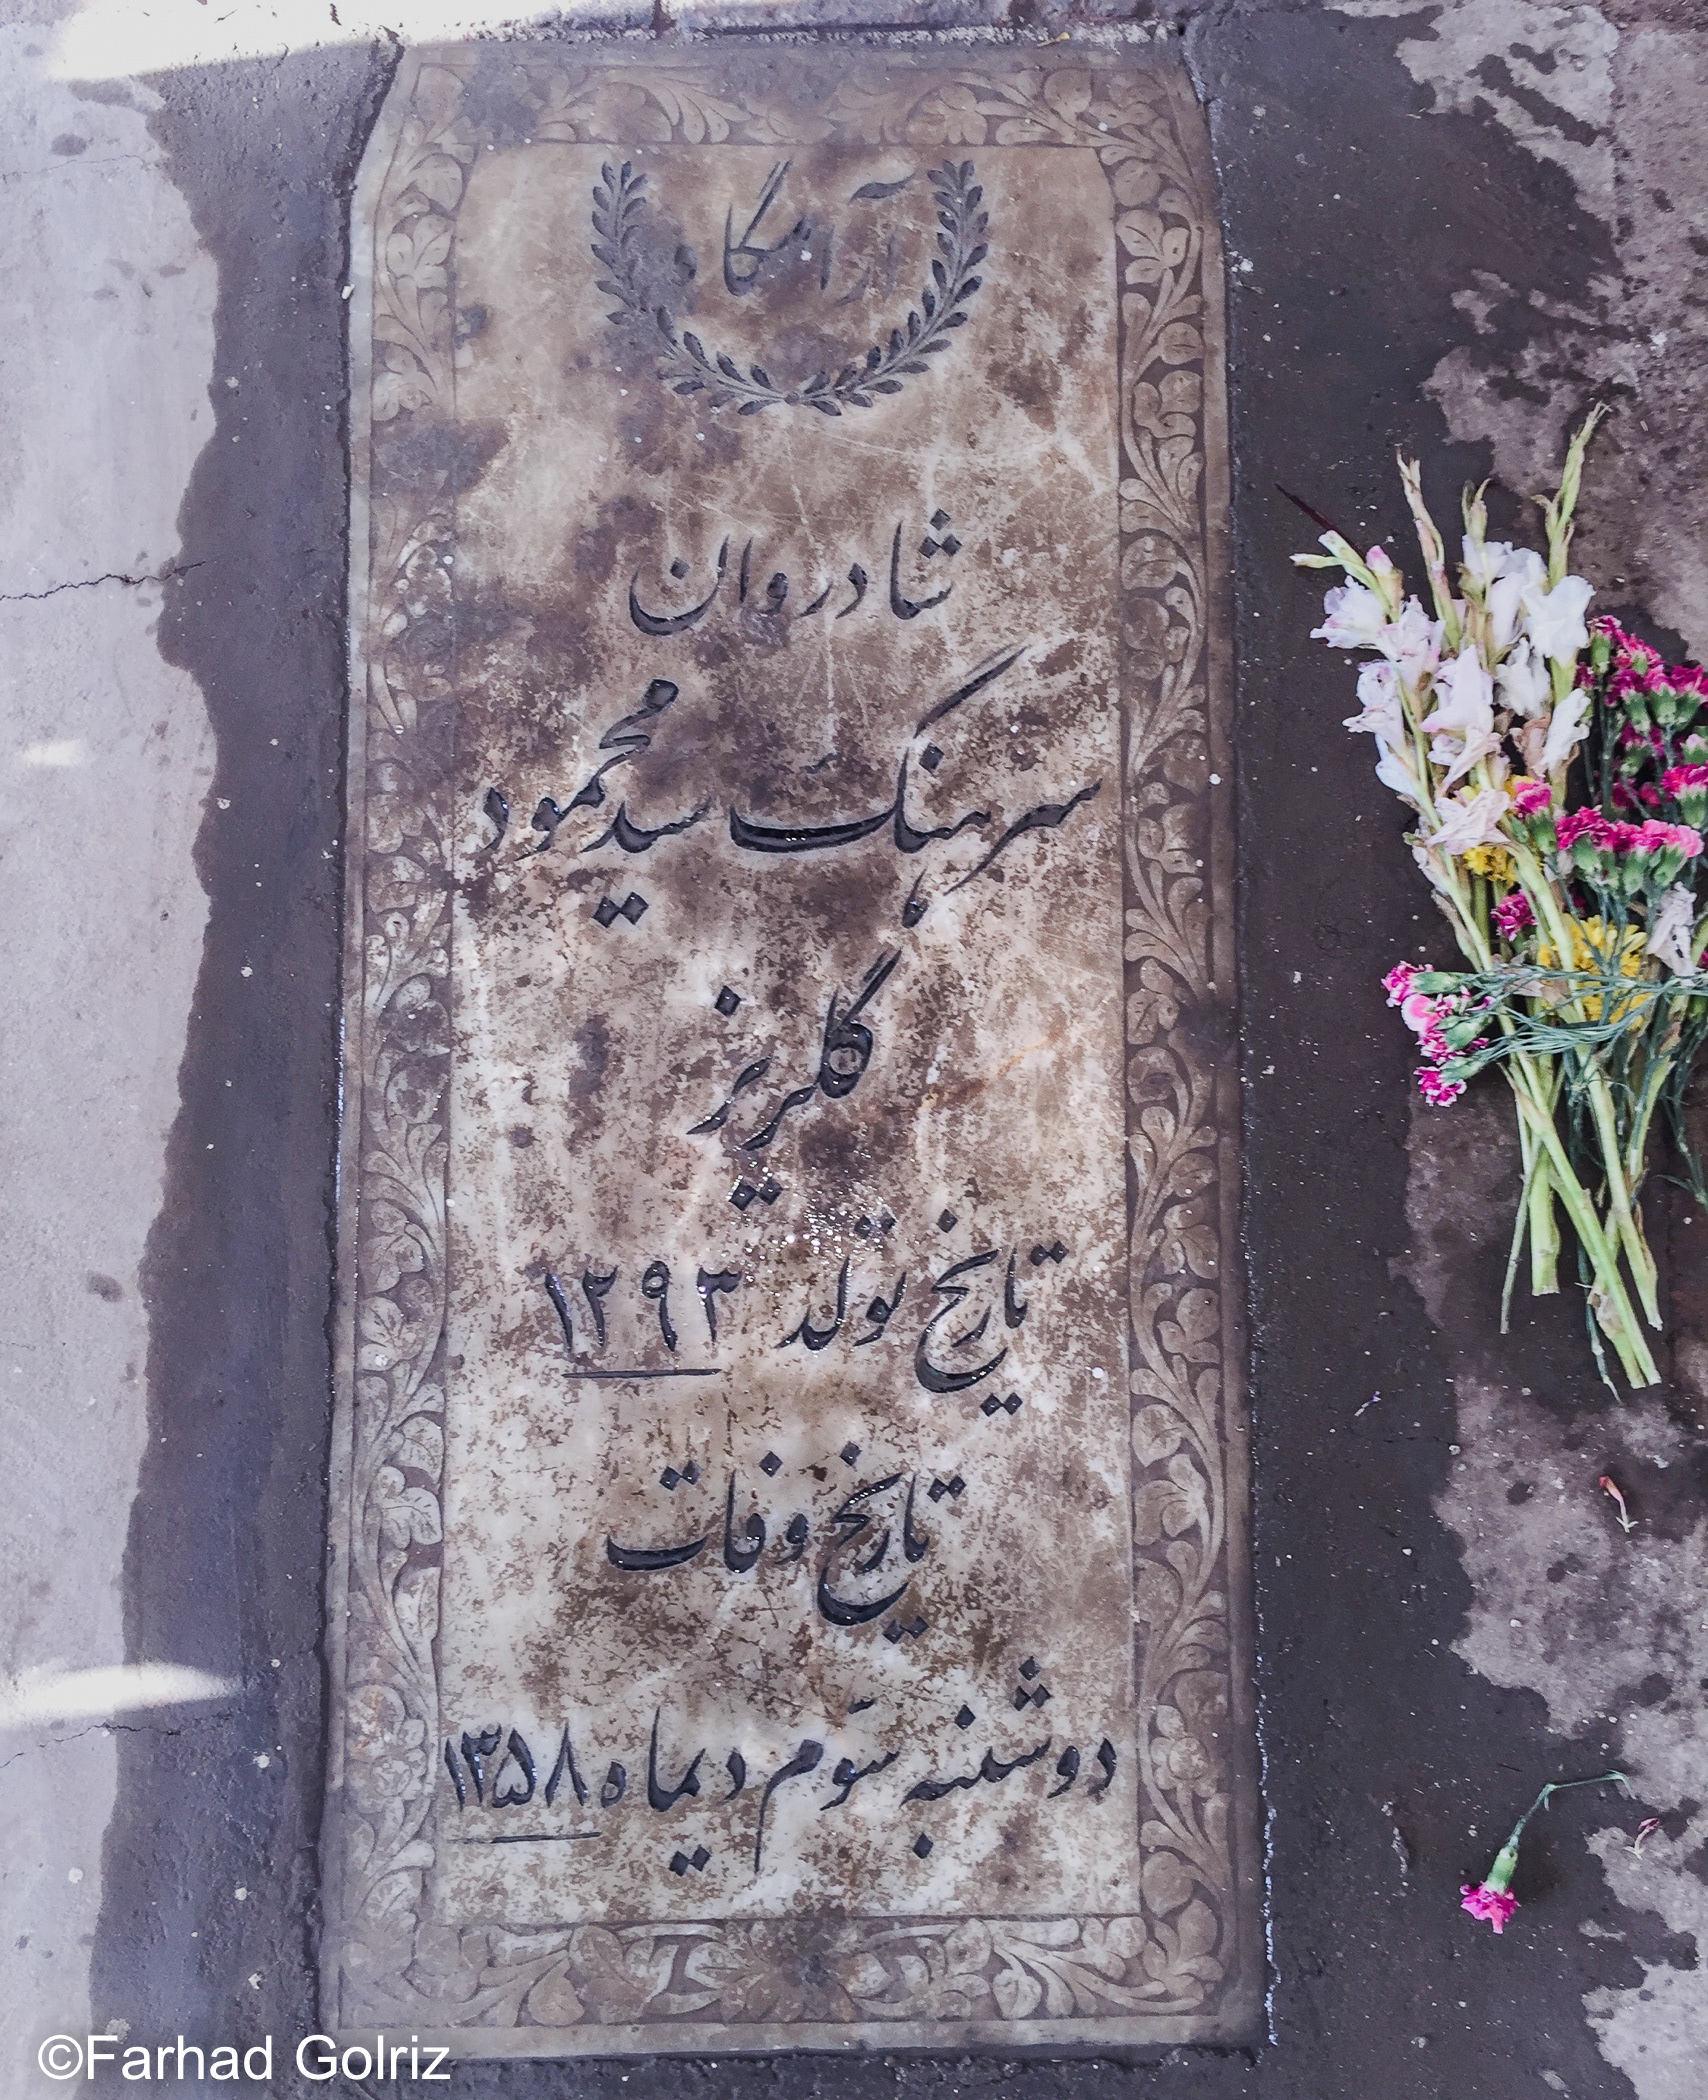 آرامگاه
شادروان
سرهنگ سید محمود
گلریز
تاریخ تولد ۱۲۹۳
تاریخ وفات
دوشنبه سوّم دیماه ۱۳۵۸
©Farhad Golriz